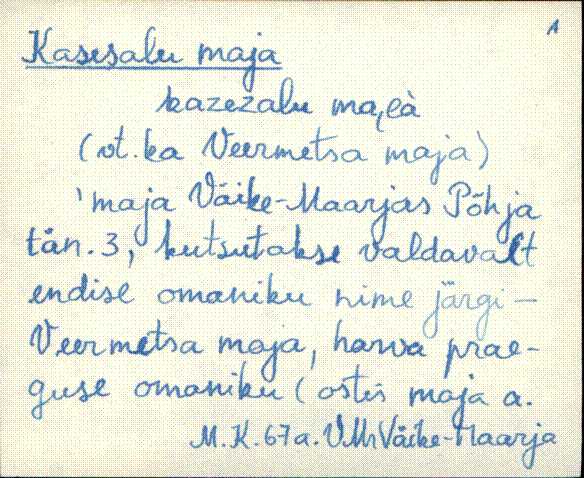 1
Kasesalu maja
kazezalu
(vt. ka Veermetsa maja)
'maja Väike-Maarjas Põhja
tän. 3, kutsutakse valdavalt
endise omaniku nime järgi –
Veermetsa maja, harva prae-
guse omaniku (ostis maja a.
M.K. 67a. VMr Väike-Maarja